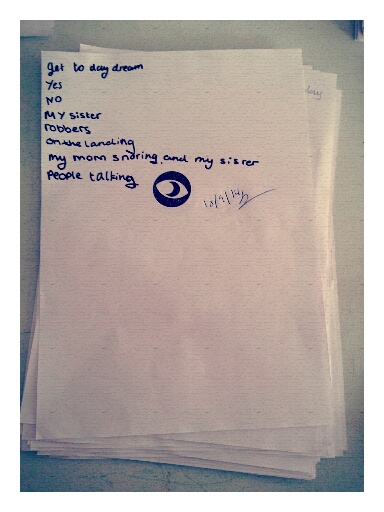 get to day dream
Yes
NO
MY sister
robbers
on the landing
my mom snoring and my sister
People talking